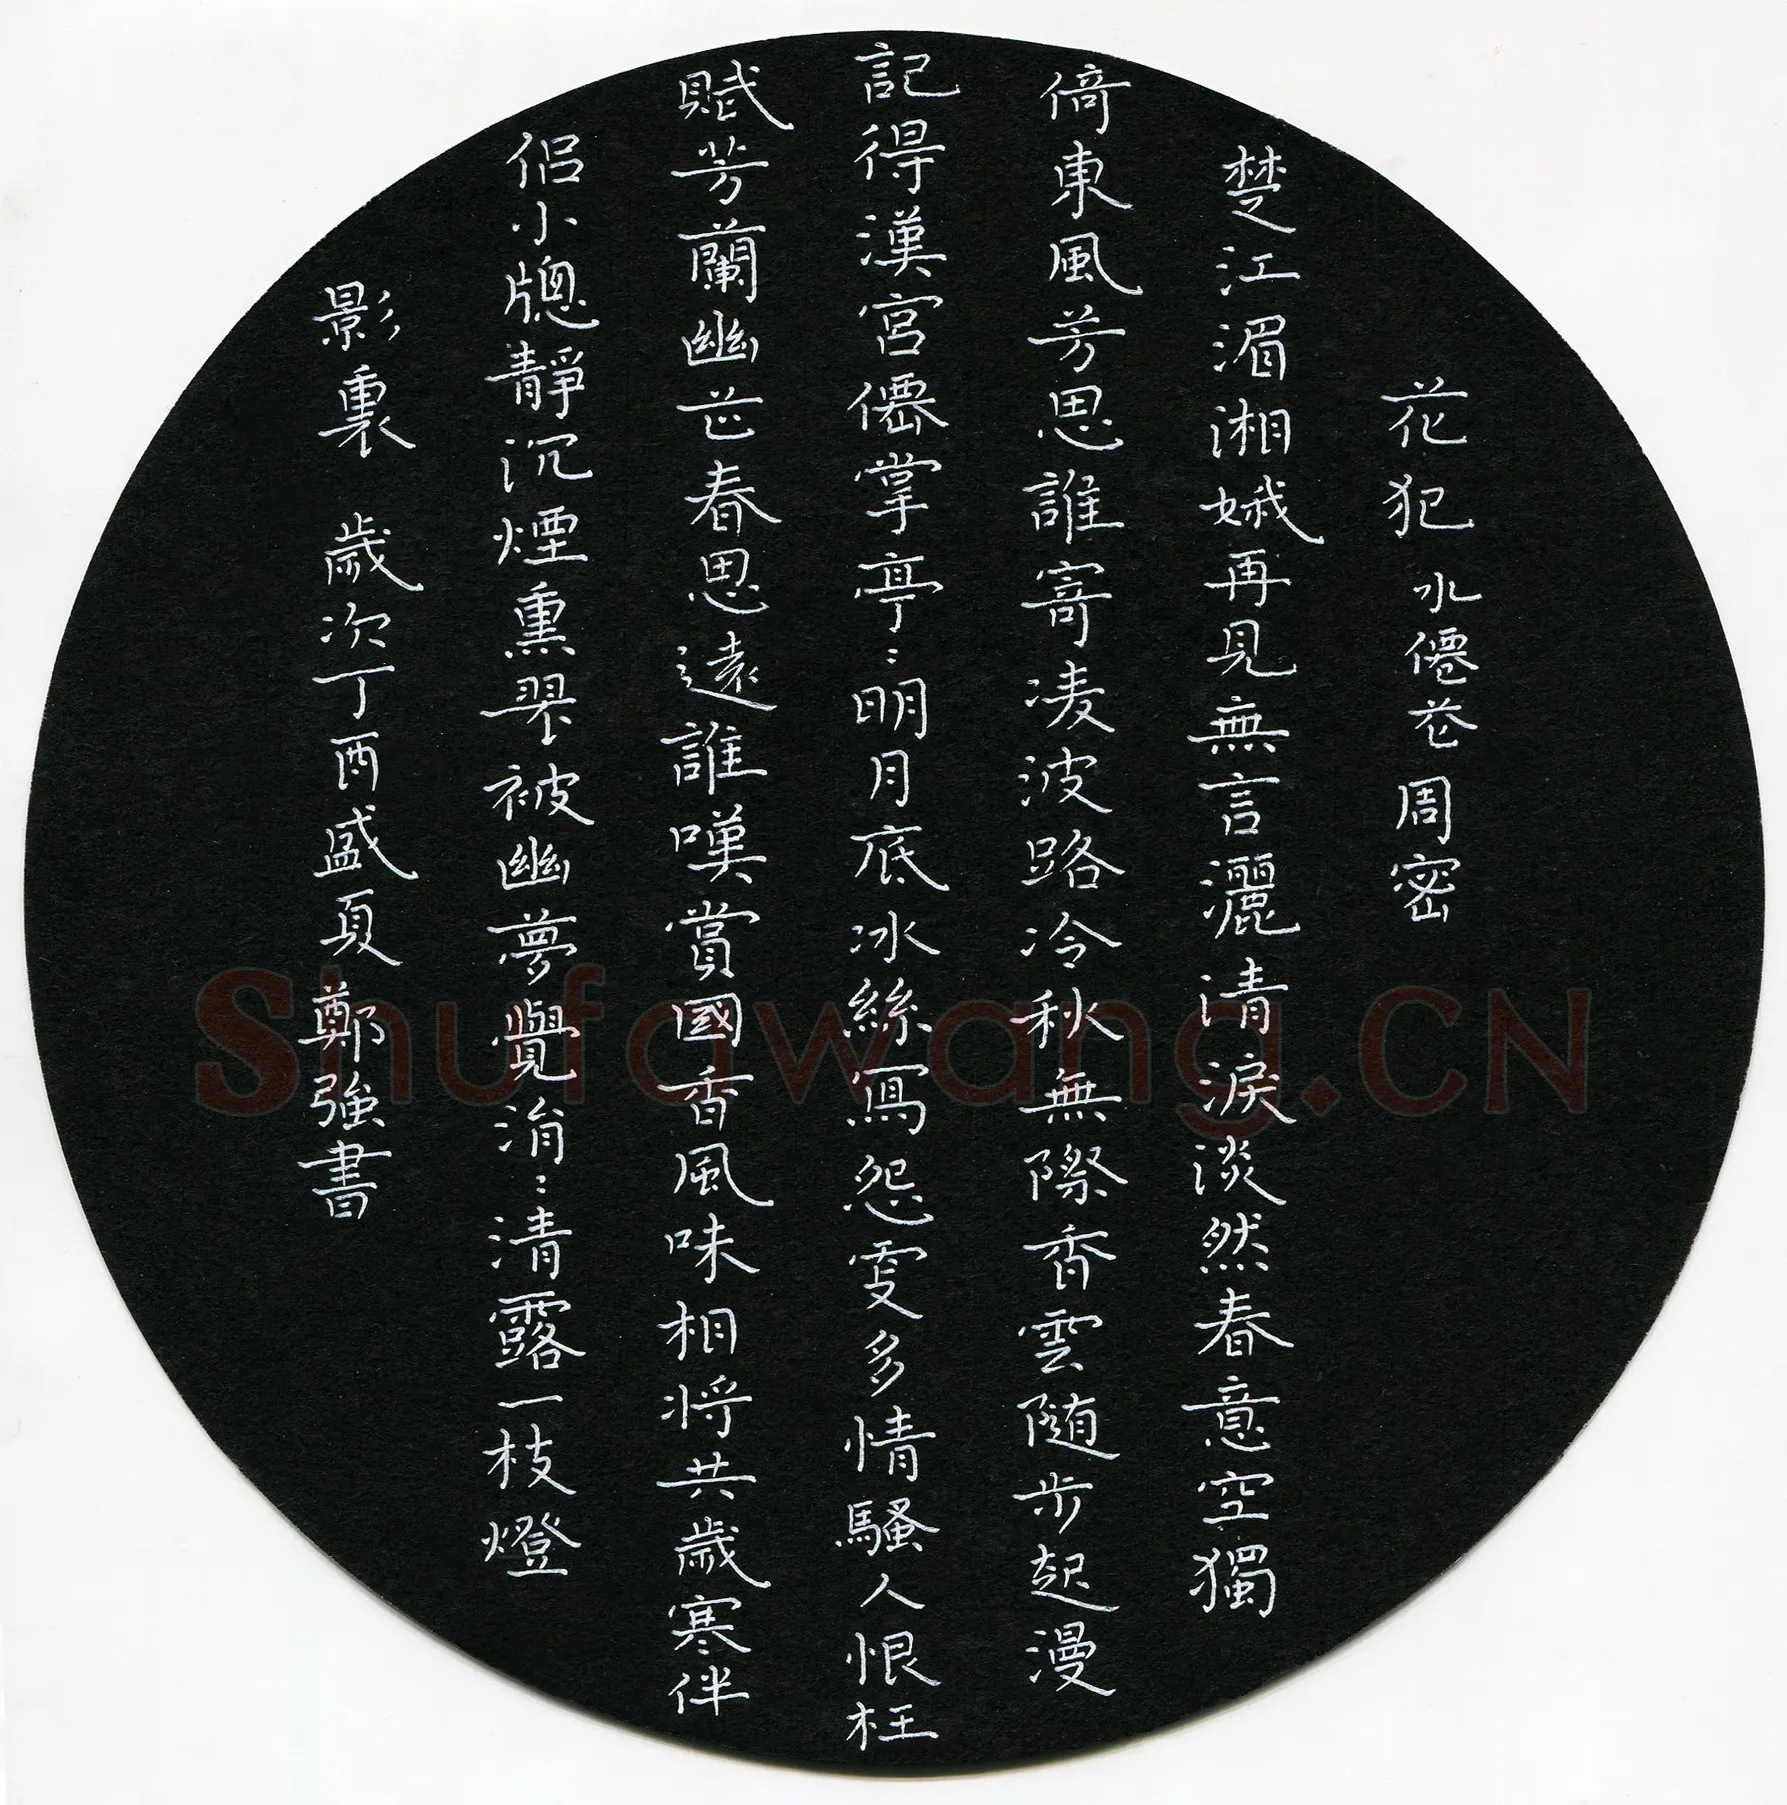 花犯 水僊花 周密
楚江湄湘娥再見無言灑清淚淡然春意空獨
倚東風芳思誰寄凌波路冷秋無際香雲随步起漫
記得漢宮僊掌亭〻明月底冰絲寫怨更多情騷人恨枉
賦芳蘭幽芷春思遠誰嘆賞國香風味相將共歲寒伴
侶小牕靜沉煙熏翠被幽夢覺涓〻清露一枝燈
影裏 歲次丁酉盛夏 鄭強書
Shufawang.CN